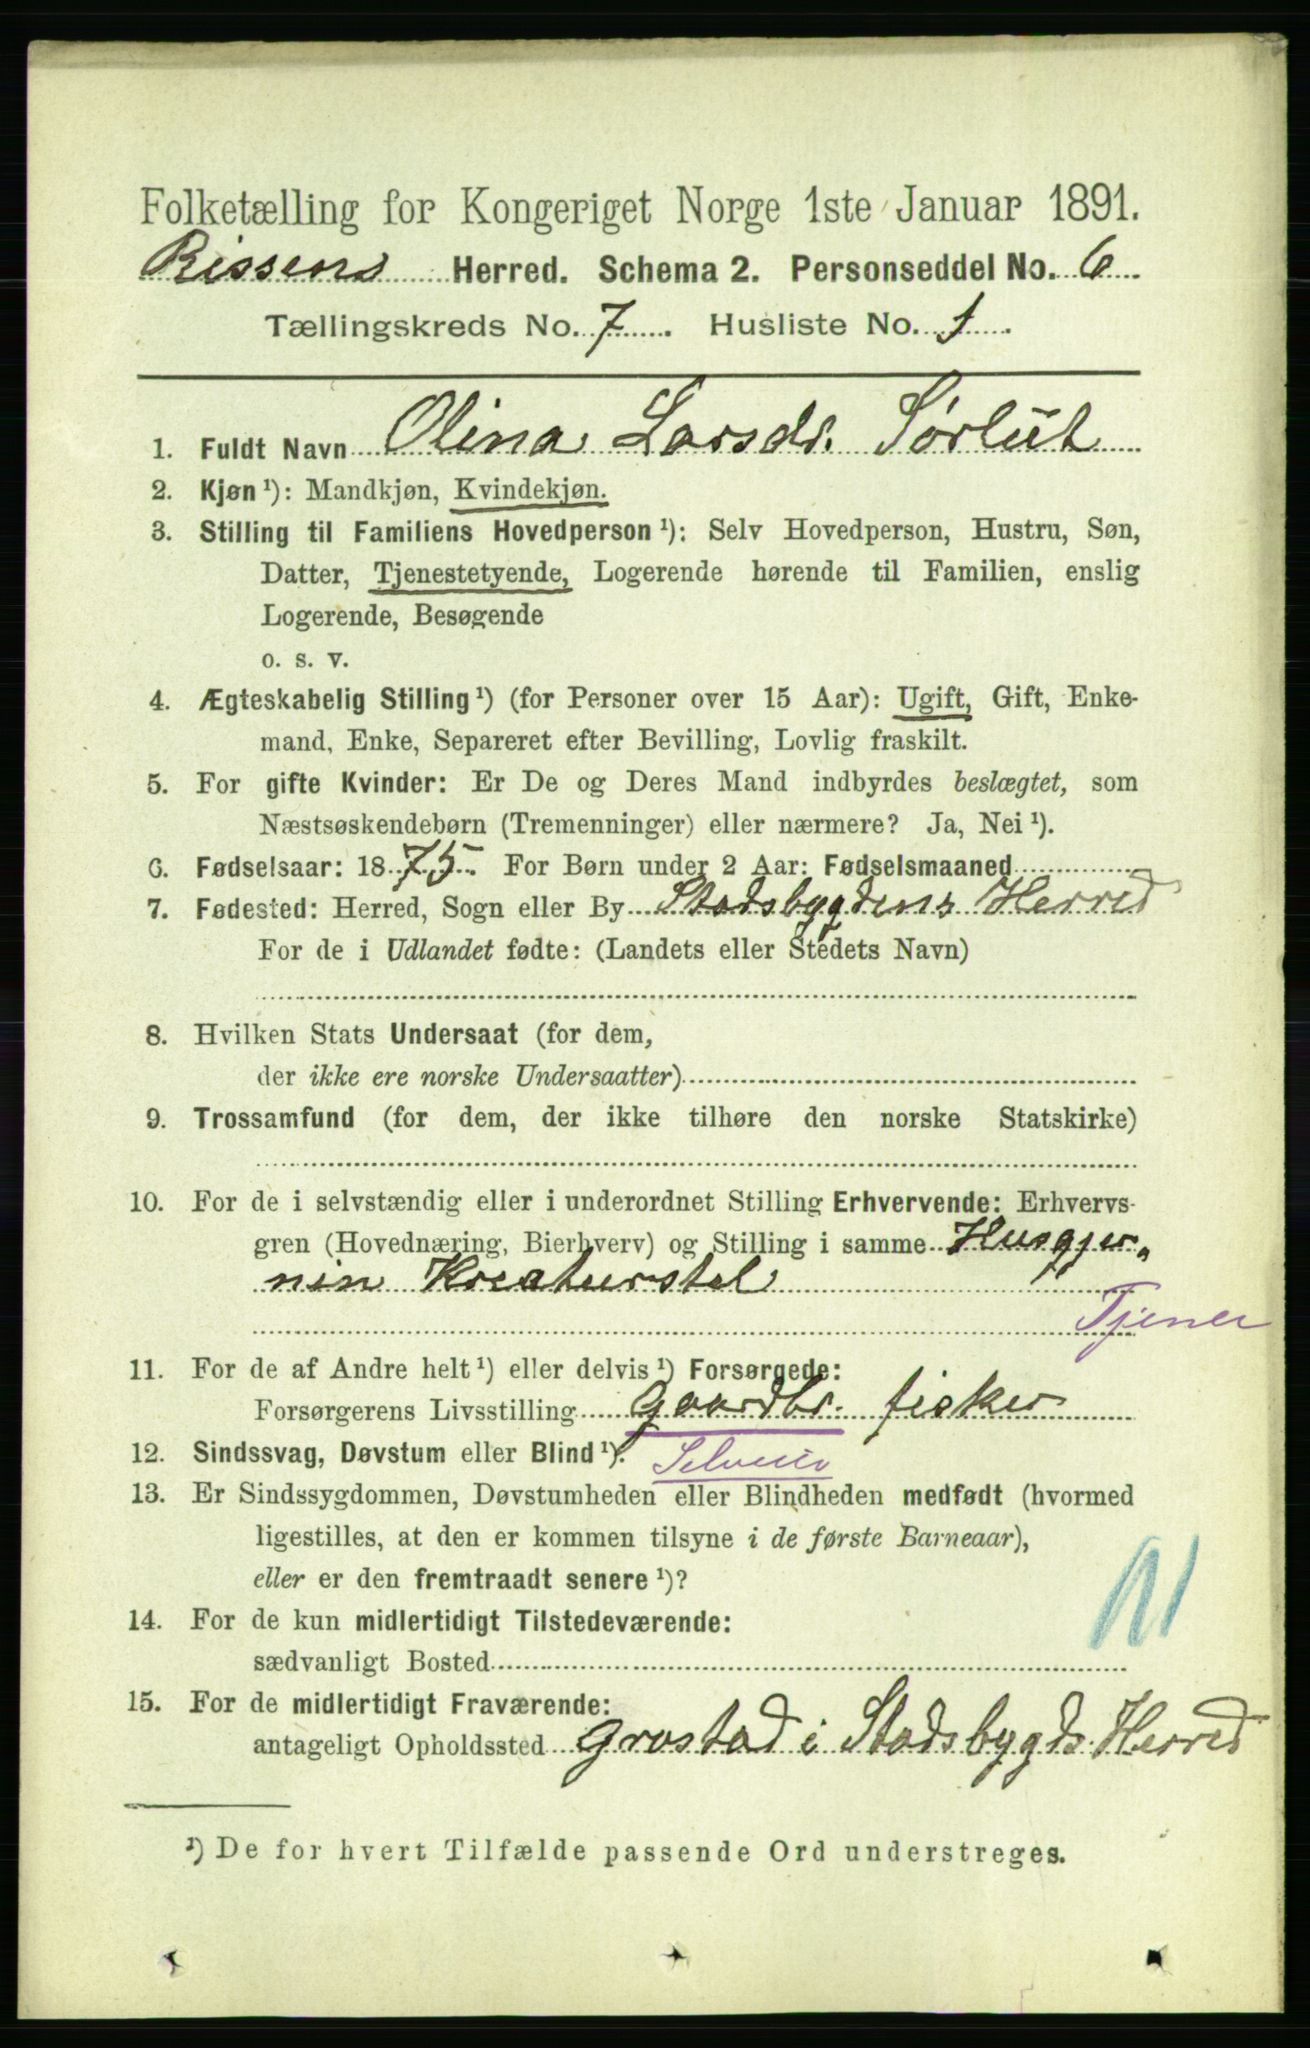 Folketælling for Kongeriget Norge 1ste Januar 1891.
Rissens Herred. Schema 2. Personseddel No. 6
Tællingskreds No. 7. Husliste No. 1.
1. Fuldt Navn Olina Larsdr. Sørlüt
2. Kjøn ¹): Mandkjøn, Kvindekjøn.
3. Stilling til Familiens Hovedperson ¹): Selv Hovedperson, Hustru, Søn,
Datter, Tjenestetyende, Logerende hørende til Familien, enslig
Logerende, Besøgende
o. s. v.
4. Ægteskabelig Stilling ¹) (for Personer over 15 Aar): Ugift, Gift, Enke-
mand, Enke, Separeret efter Bevilling, Lovlig fraskilt.
5. For gifte Kvinder: Er De og Deres Mand indbyrdes beslægtet, som
Næstsøskendebørn (Tremenninger) eller nærmere? Ja, Nei ¹).
6. Fødselsaar: 1875. For Børn under 2 Aar: Fødselsmaaned
7. Fødested: Herred, Sogn eller By Stadsbygdens Herred
For de i Udlandet fødte: (Landets eller Stedets Navn)
8. Hvilken Stats Undersaat (for dem,
der ikke ere norske Undersaatter)
9. Trossamfund (for dem, der ikke tilhøre den norske Statskirke)
10. For de i selvstændig eller i underordnet Stilling Erhvervende: Erhvervs-
gren (Hovednæring, Bierhverv) og Stilling i samme Husgjer„
nin Kreaturstel
Tjener
11. For de af Andre helt ¹) eller delvis ¹) Forsørgede:
Forsørgerens Livsstilling Gaardbr. fisker
12. Sindssvag, Døvstum eller Blind ¹). Selveier
13. Er Sindssygdommen, Døvstumheden eller Blindheden medfødt (hvormed
ligestilles, at den er kommen tilsyne i de første Barneaar),
eller er den fremtraadt senere ¹)?
14. For de kun midlertidigt Tilstedeværende:
sædvanligt Bosted
15. For de midlertidigt Fraværende:
antageligt Opholdssted Grostad i Stadsbygds Herred
¹) De for hvert Tilfælde passende Ord understreges.